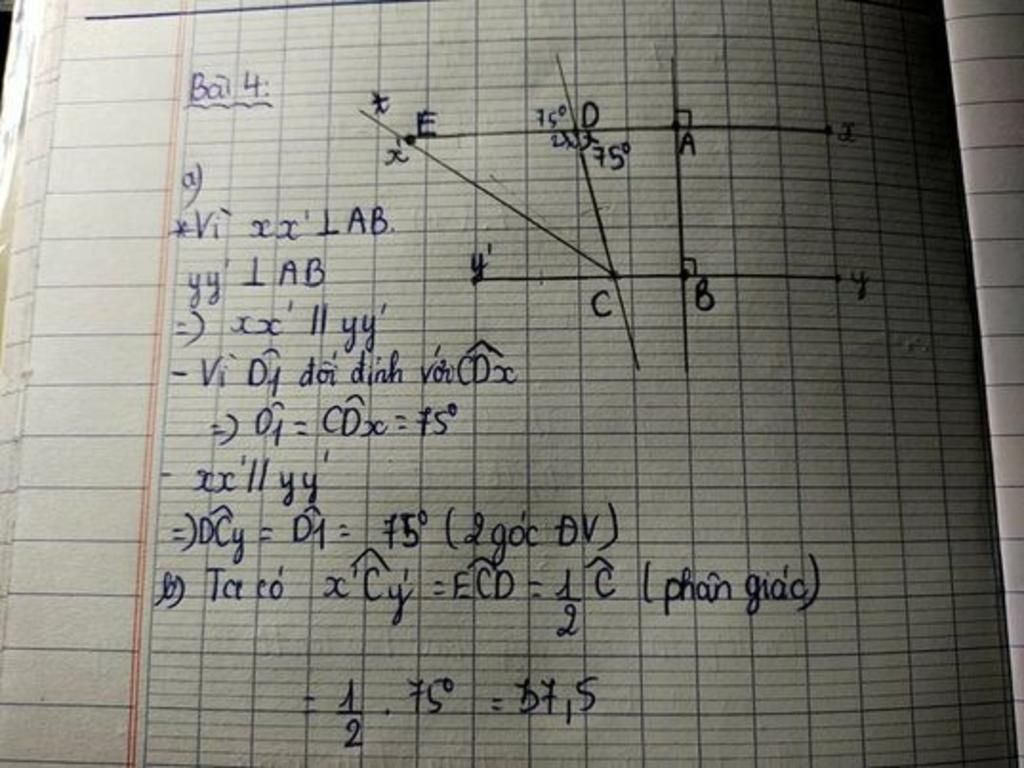 Bài 4:
x E 75° D
x' 2 x 75° A x
a)
*Vì xx' ⊥ AB.
yy' ⊥ AB
y' C B y
=) xx' // yy'
- Vì D̂1 đối đỉnh với CD̂x
=) D̂1 = CD̂x = 75°
- xx' // yy'
=) DĈy = D̂1 = 75° (2 góc ĐV)
b) Ta có x'Ĉy' = EĈD = 1/2 Ĉ (phân giác)
= 1/2 . 75° = 37,5